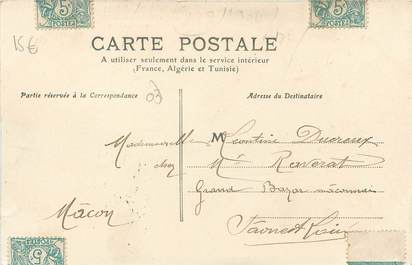 5c
5c
15€
CARTE POSTALE
A utiliser seulement dans le service intérieur
(France, Algérie et Tunisie)
Partie réservée à la Correspondance
Adresse du Destinataire
Mademoiselle M Léontine Ducroux
chez Mr Raverat
Grand Bazar mâconnais
Mâcon
Saône et Loire
5c